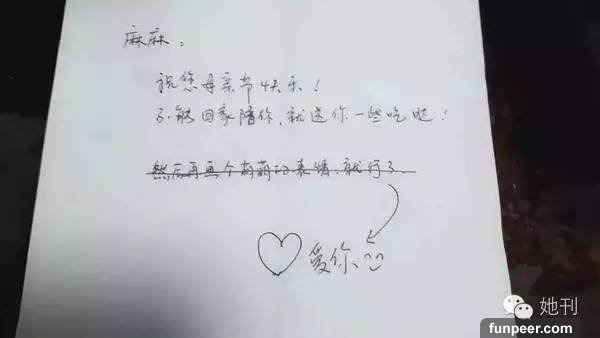 麻麻：
祝您母亲节快乐！
不能回家陪你，就送你一些吃哒！
然后再画个萌萌的表情，就行了。
爱你
她刊
funpeer.com